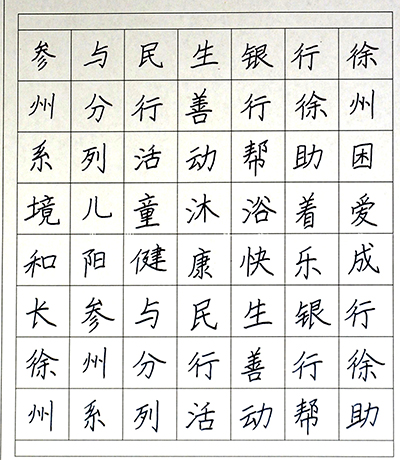 参与民生银行徐
州分行善行徐州
系列活动帮助困
境儿童沐浴着爱
和阳健康快乐成
长参与民生银行
徐州分行善行徐
州系列活动帮助